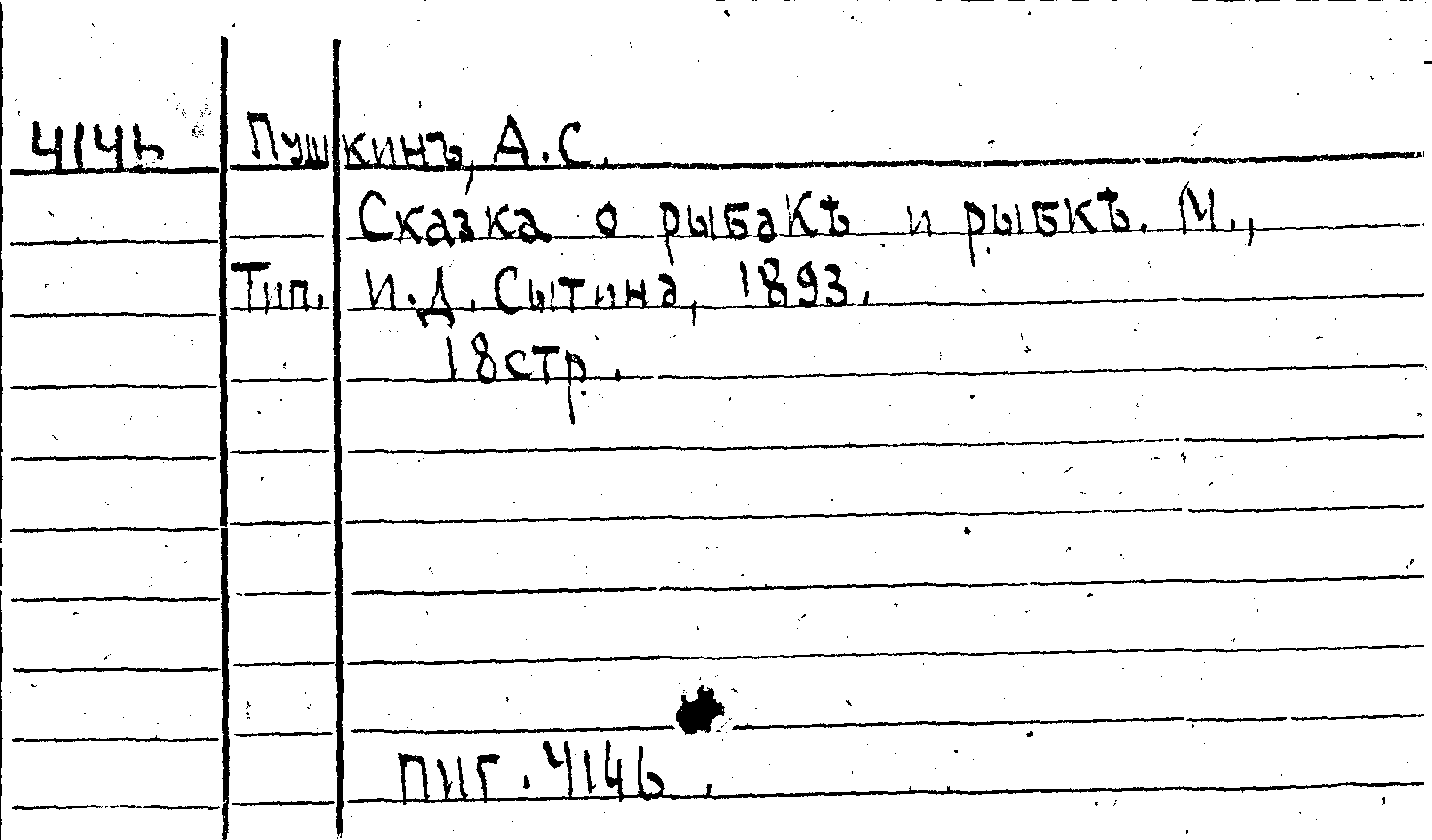 4146 Пушкинъ, А.С.
Сказка о рыбакѣ и рыбкѣ. М.,
Тип. И.Д. Сытина, 1893.
18 стр.
ПИГ. 4146.